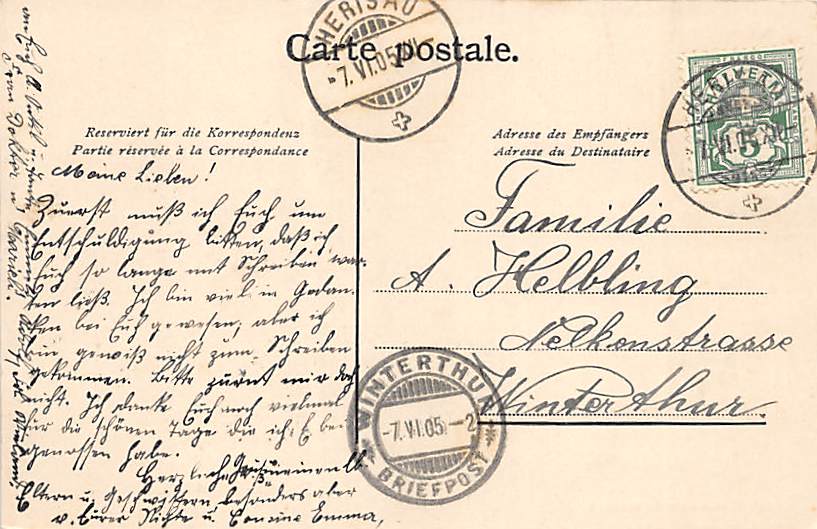 Carte postale.
HERISAU
7.VI.05 XII
HERISAU
7.VI.05 XII
5
Reserviert für die Korrespondenz
Partie réservée à la Correspondance
Adresse des Empfängers
Adresse du Destinataire
Meine Lieben!
Zuerst muß ich Euch um
Entschuldigung bitten, daß ich
Euch so lange mit Schreiben war-
ten ließ. Ich bin viel in Gedan-
ken bei Euch gewesen, aber ich
bin gewiß nicht zum Schreiben
gekommen. Bitte zürnt mir doch
nicht. Ich danke Euch noch vielmal
für die schönen Tage die ich b. E.
genossen habe.
Herzliche Grüße v. meinen lb.
Eltern u. Geschwistern besonders aber
v. Eurer Nichte u. Cousine Emma,
Familie
A. Helbling
Nelkenstrasse
Winterthur.
WINTERTHUR
-7.VI.05-2
BRIEFPOST